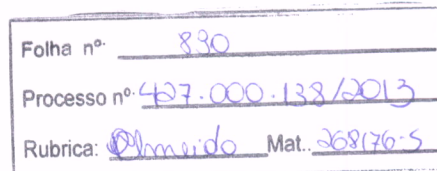 Folha nº. 830
Processo nº. 427.000.138/2013
Rubrica: Almeida Mat.. 268176-5